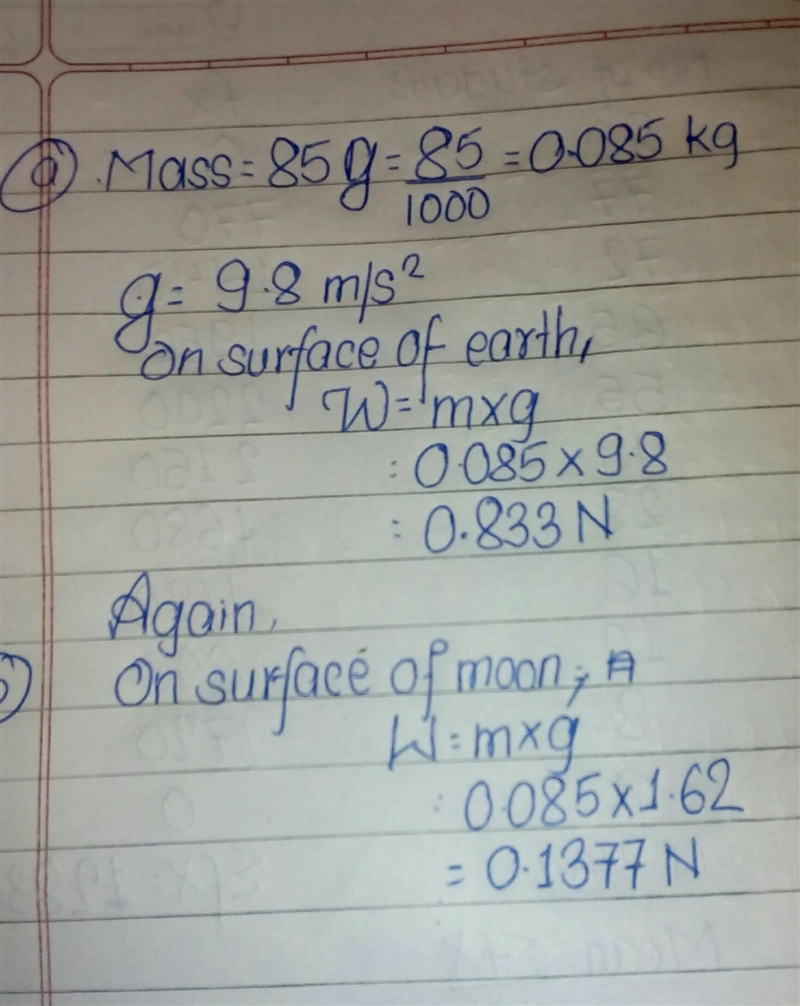 a) Mass = 85 g = 85/1000 = 0.085 kg
g = 9.8 m/s²
On surface of earth,
W = m×g
: 0.085 × 9.8
: 0.833 N
Again,
On surface of moon;
W = m×g
: 0.085 × 1.62
= 0.1377 N